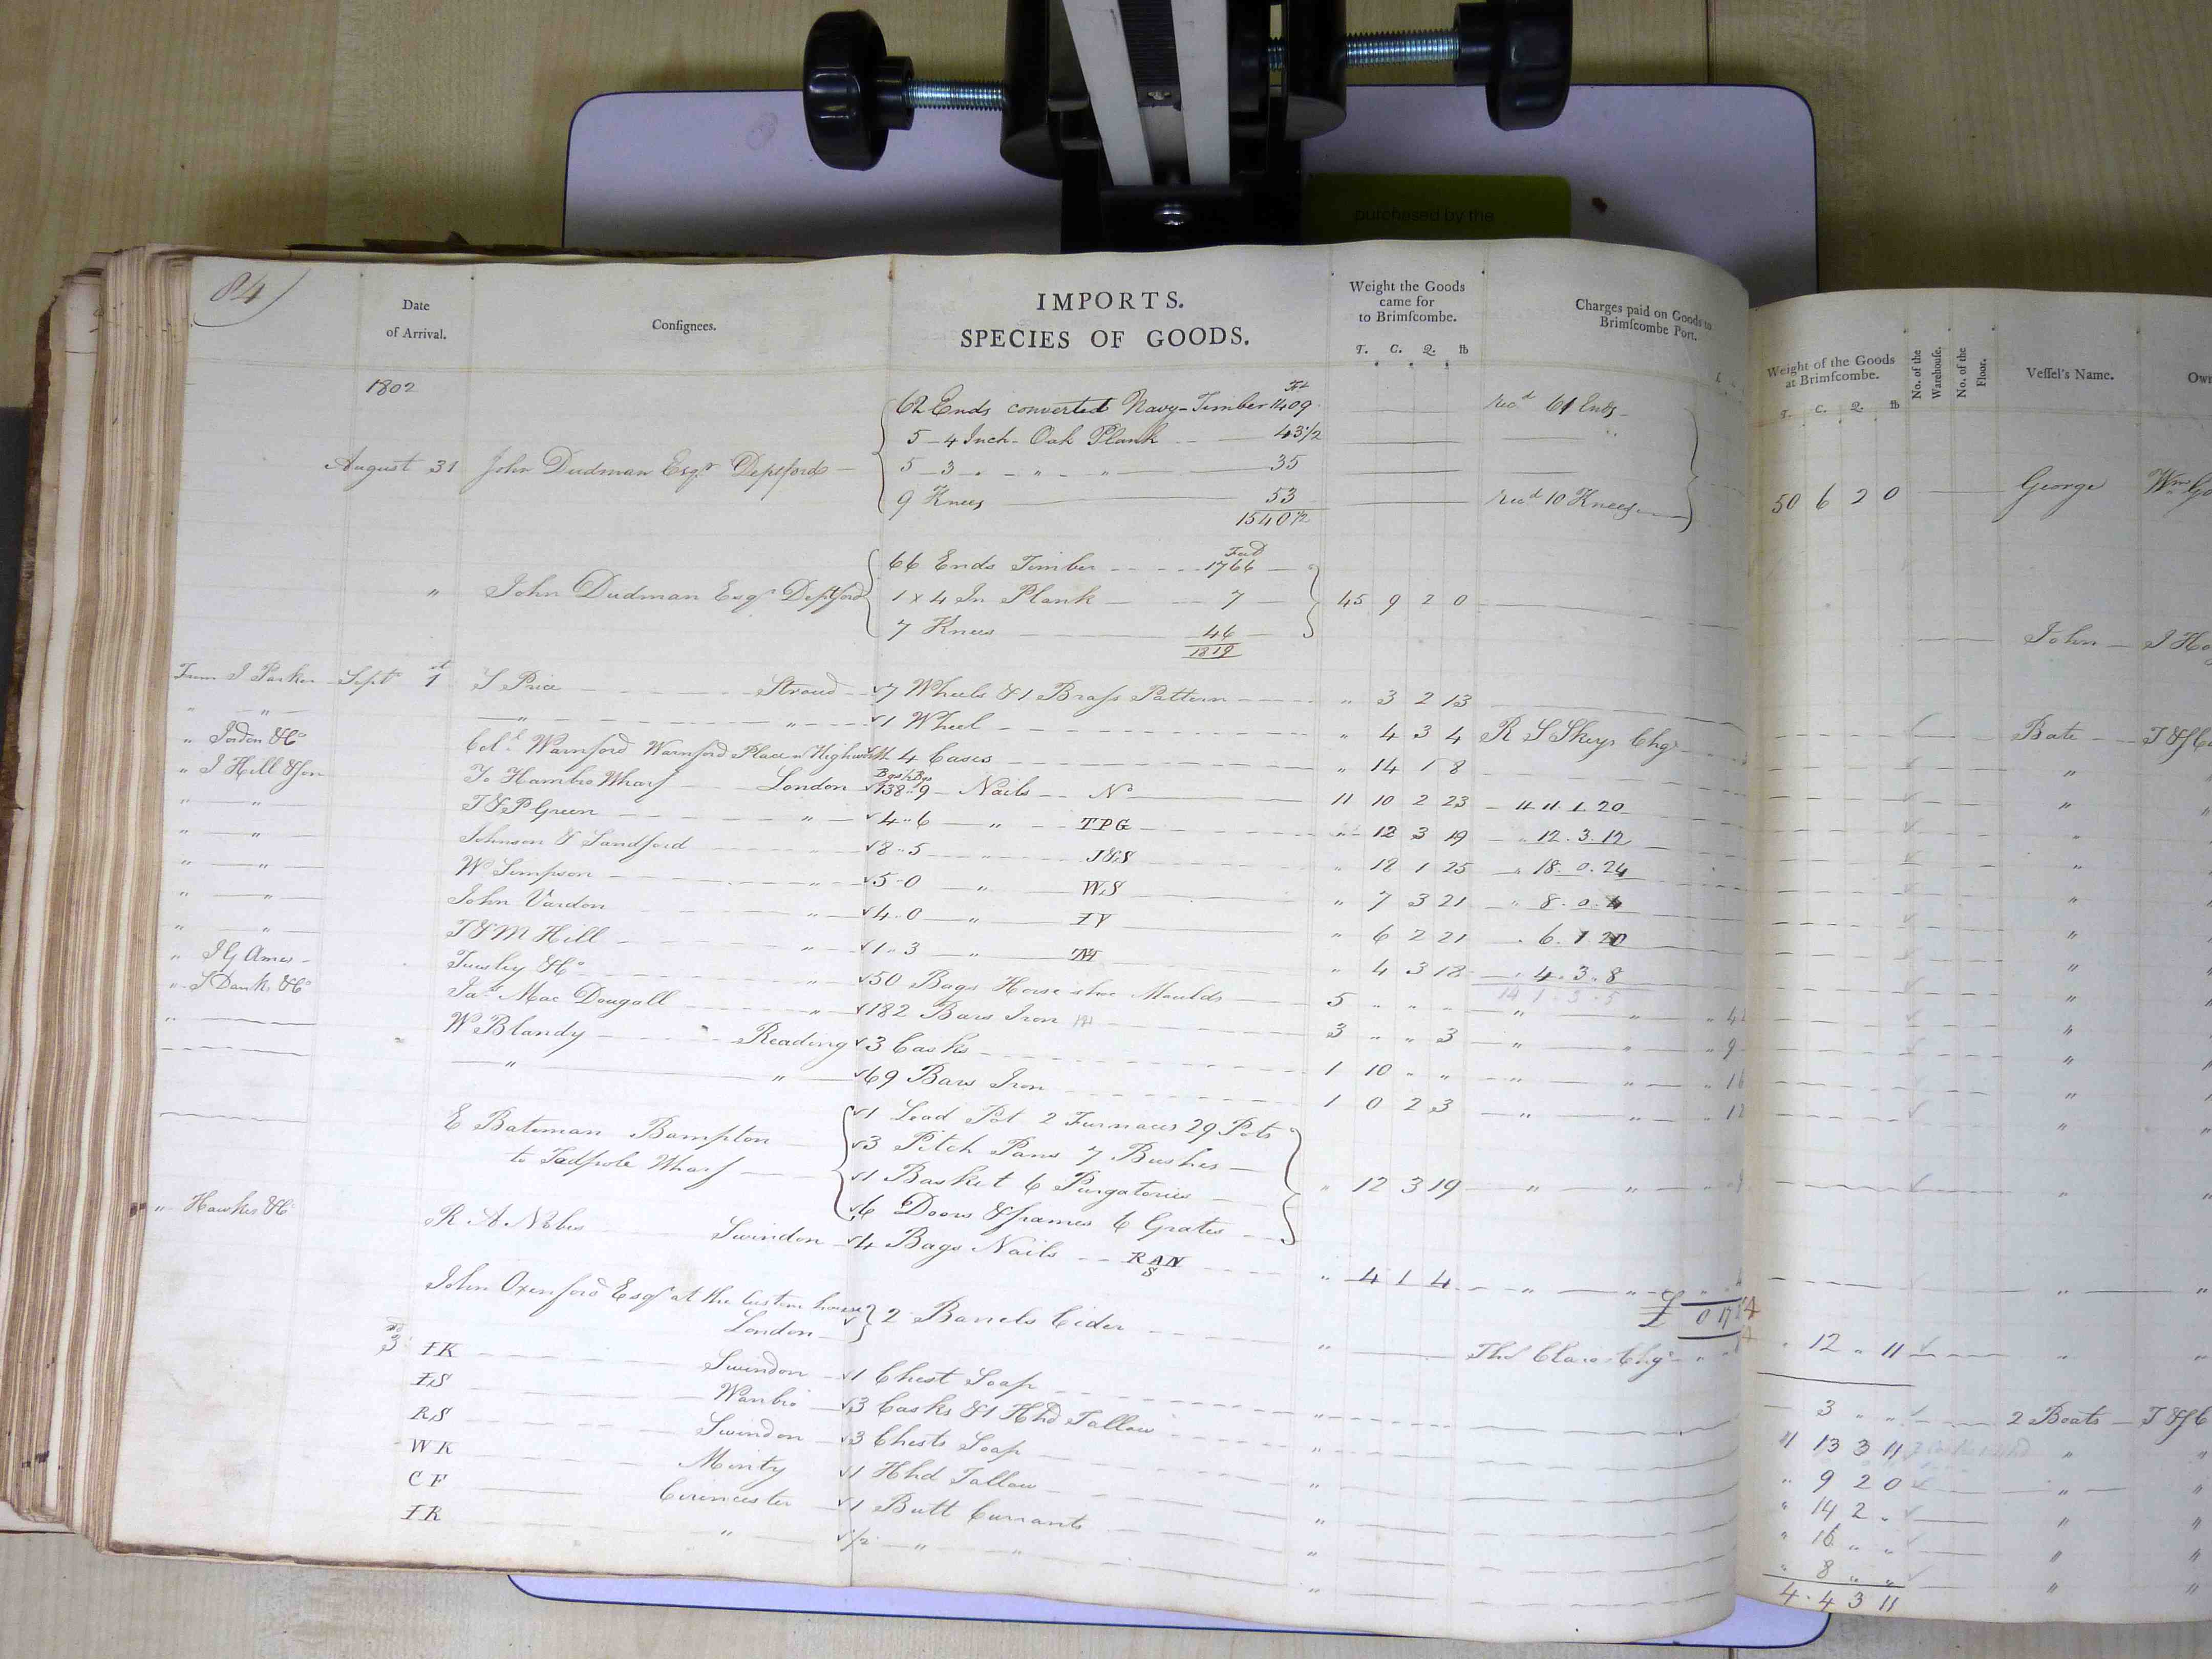 purchased by the
84
Date of Arrival.
Consignees.
IMPORTS.
SPECIES OF GOODS.
Weight the Goods came for to Brimscombe.
T. C. Q. lb
Charges paid on Goods to Brimscombe Port.
Weight of the Goods at Brimscombe.
T. C. Q. lb
No. of the Warehouse.
No. of the Floor.
Vessel's Name.
1802
62 Ends converted Navy-Timber 1409 recd 61 Ends
5 - 4 Inch - Oak Plank 43 1/2
August 31 John Dudman Esqr Deptford 5 - 3 " " 35 50 6 2 0 George
9 Knees 53 recd 10 Knees
1540 1/2
66 Ends Timber Feet 1766
" John Dudman Esqr Deptford 1 x 4 In Plank 7 45 9 2 0 John
7 Knees 46
1819
From J Parker Sept 1st S Price Stroud 7 Wheels & 1 Brass Pattern " 3 2 13 Bate
" " " " 1 Wheel " 4 3 4 R S Skeys Chgs "
" Jordon & Co Coll Warnford Warnford Place n Highworth 4 Cases " 14 1 8 "
" J Hill & Son To Hambro Wharf London 138 " 9 Nails No 11 10 2 23 11.11.1.20
" " T & P Green " 4 " 6 " TPG " 12 3 19 " 12.3.12
" " Johnson & Sandford 8 " 5 J&S " 18 1 25 " 18.0.24
" " W Simpson " 5 " 0 " WS " 7 3 21 " 8.0.4
" " John Vardon " 4 " 0 " IV " 6 2 21
" " T & M Hill " 1 " 3 " " 4 3 18 " 4.3.8
" J G Ames Tuesley & Co " 50 Bags Horse shoe Moulds 5 " " " " "
" S Danks & Co Jas Mac Dougall " 182 Bars Iron 3 " " 3 " " " 9
" W Blandy Reading 3 Casks 1 10 " " " "
" " 69 Bars Iron 1 0 2 3 " "
1 Lead Pot 2 Furnaces 29 Pots
E Bateman Bampton 3 Pitch Pans 7 Bushes
to Tadpole Wharf 1 Basket 6 Purgatories " 12 3 19 " "
6 Doors & frames 6 Grates
" Hawkes & Co R A Nobes Swindon 4 Bags Nails RAN S " 4 1 4 " "
£ 0 17
John Oxenford Esqr at the Custom house London 2 Barrels Cider " Thos Clare Chgs " 12 " 11
3rd IK Swindon 1 Chest Soap " 3 " " 2 Boats
IS Wanbro 3 Casks & 1 Hhd Tallow " 1 13 3 11 "
RS Swindon 3 Chests Soap " " 9 2 0 "
WK Minty 1 Hhd Tallow " " 14 2 " "
CF Cirencester 1 Butt Currants " " 16 " " "
IR " 1/2 " " " " 8 " " "
4.4 3 11